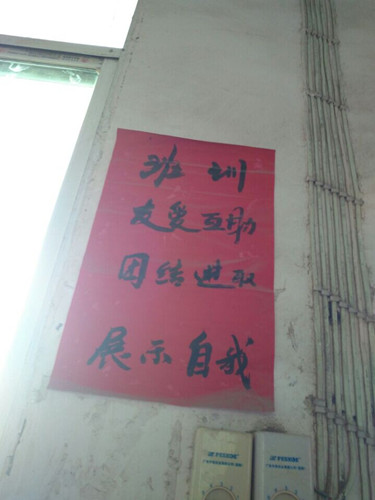 班训
友爱互助
团结进取
展示自我